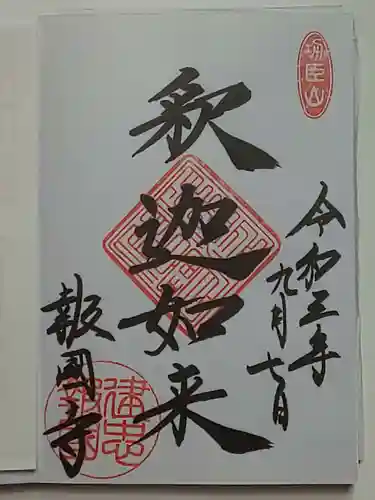 功臣山
令和三年
九月七日
釈迦如来
報國寺
建忠